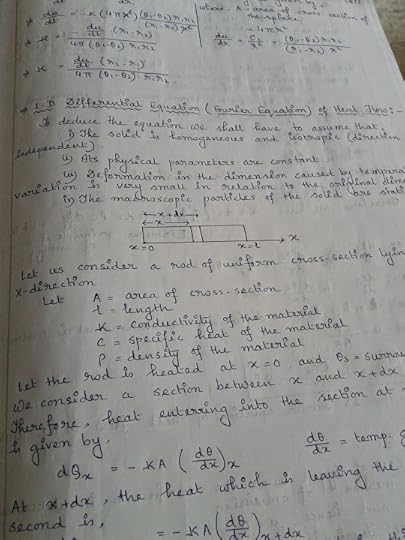 du/dt = -K (4πx²) (θ₁-θ₂) r₁r₂ / (r₁-r₂) x²
where, A = area of cross section of
the sphere
= 4πx²
⇒ K = - du/dt (r₁-r₂) / 4π (θ₁-θ₂) r₁r₂
⇒ K = du/dt (r₂-r₁) / 4π (θ₁-θ₂) r₁r₂
⇒ 1-D Differential Equation (Fourier Equation) of Heat Flow:-
To deduce the equation we shall have to assume that,
i) The solid is homogeneous and isotropic (direction
independent)
ii) Its physical parameters are constant
iii) Deformation in the dimension caused by
variation is very small in relation to the original
iv) The macroscopic particles of the solid are
x+dx
x
x=0 x=l x
Let us consider a rod of uniform cross-section
x-direction
Let A = area of cross-section
l = length
K = conductivity of the material
C = specific heat of the material
ρ = density of the material
Let the rod is heated at x=0 and θs =
We consider a section between x and x+dx
Therefore, heat entering into the section at
is given by,
dQx = -KA (dθ/dx)x
dθ/dx = temp.
At x+dx, the heat which is leaving the
second is,
= -KA (dθ/dx)x+dx